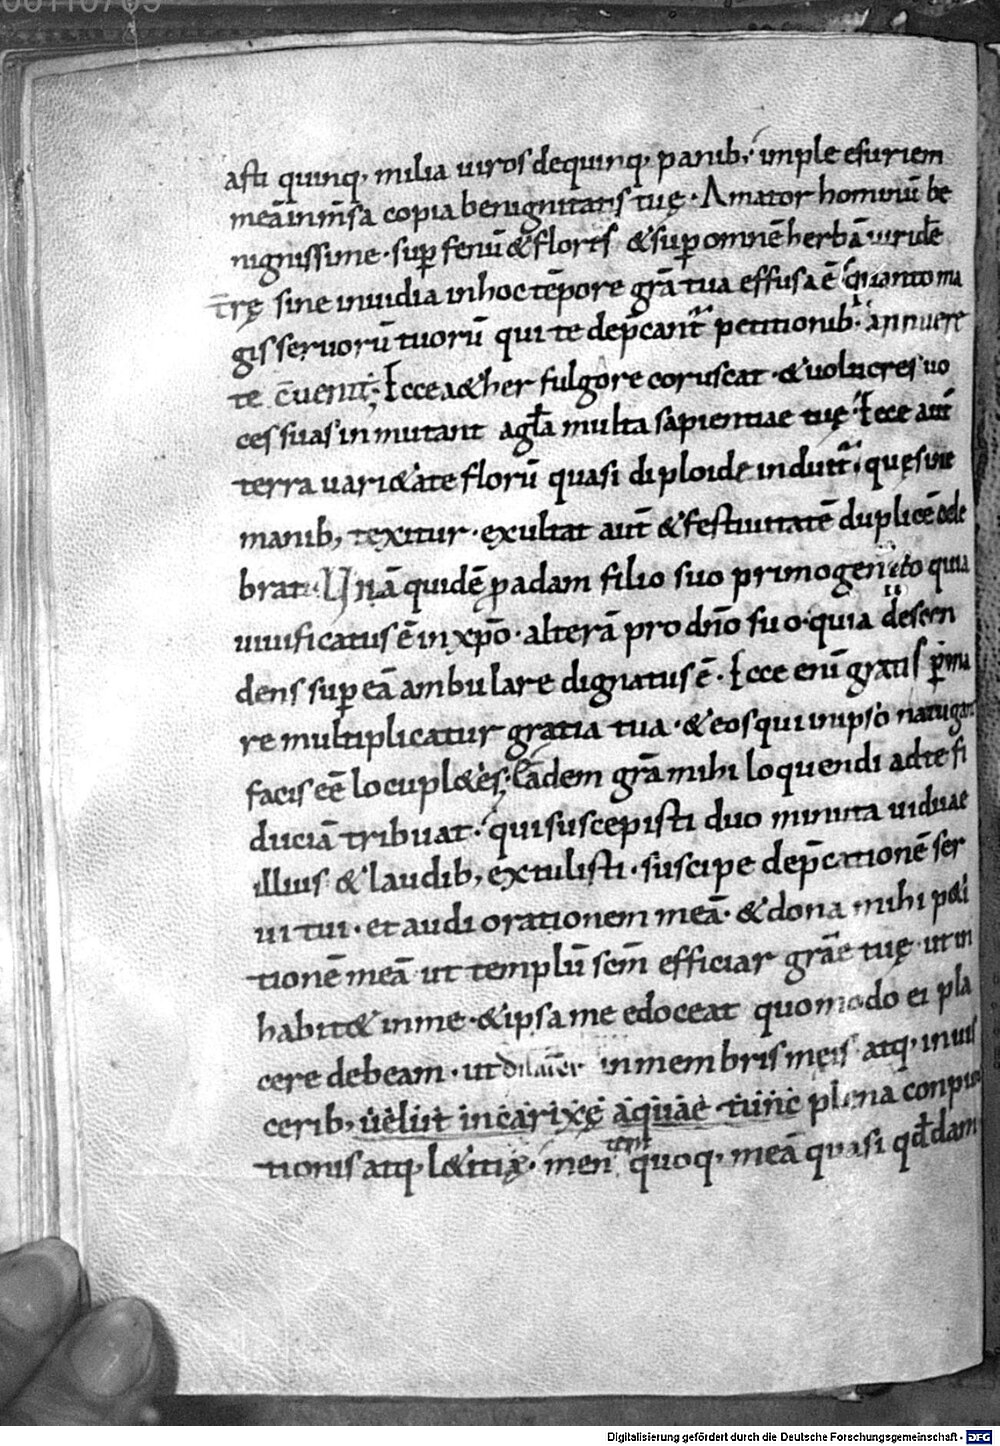 asti quinq, milia uiros dequinq, panib; imple esuriem
meā inm̄sa copia benignitatis tuę. Amator hominū be
nignissime. sup fenū & floris & sup omnē herbā uiridē
t̄rę sine inuidia inhoc tēpore grā tua effusa ē quanto ma
gis seruorū tuorū qui te dep̄cant petitionib. annuere
te c̄uenit; Ecce a&her fulgore coruscat. & uolucres uo
ces suas inmutant aḡla multa sapientiae tuę. Ecce aūt
terra uari&ate florū quasi diploide induit quę sine
manib, texitur. exultat aūt & festiuitatē duplicē cele
brat. Unā quidē p adam filio suo primogenito quia
uiuificatus ē in xp̄o. alterā pro dn̄o suo. quia descen
dens sup eā ambulare dignatus ē. Ecce enī gratis p̄ma
re multiplicatur gratia tua. & eos qui inipso nauigant
facis eē locupl&es; Eadem grā mihi loquendi adte fi
duciā tribuat. qui suscepisti duo minuta uiduae
illius & laudib, extulisti. suscipe dep̄cationē ser
ui tui. et audi orationem meā. & dona mihi p&i
tionē meā ut templū scm̄ efficiar grāe tuę. ut in
habit& inme. & ipsa me edoceat quomodo ei pla
cere debeam. ut in membris meis atq, inuis
cerib, uelut incarixę aquae tunc plena conpunc
tionis atq, l&itię. men quoq, meā quasi qd̄dam